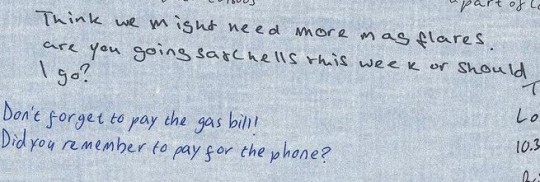 part of
Think we might need more mag flares.
are you going satchells this week or should
I go?
Don't forget to pay the gas bill!!
Did you remember to pay for the phone?
Lo
10.3